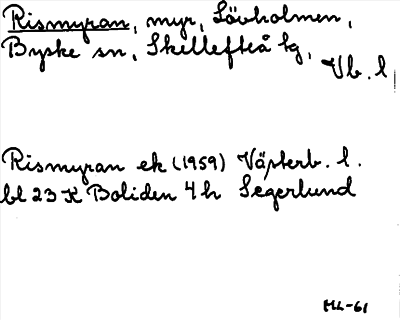 Rismyran, myr, Lövholmen,
Byske sn, Skellefteå tg,
Vb. l
Rismyran ek (1959) Västerb. l.
bl 23 K Boliden 4 h Segerlund
ML-61